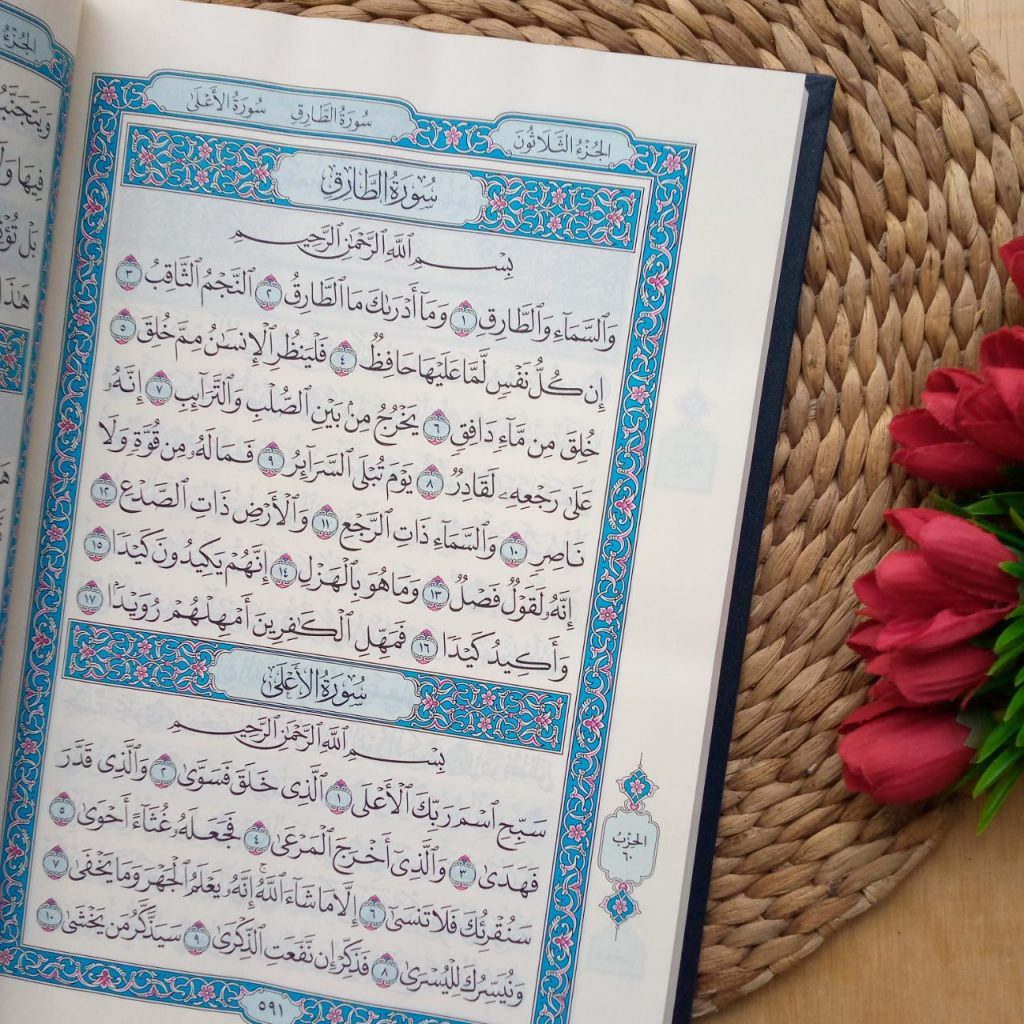 الجُزْءُ الثَّلَاثُونَ
سُورَةُ الطَّارِقِ سُورَةُ الأَعْلَىٰ
سُورَةُ الطَّارِقِ
بِسْمِ ٱللَّهِ ٱلرَّحْمَٰنِ ٱلرَّحِيمِ
وَٱلسَّمَآءِ وَٱلطَّارِقِ ١ وَمَآ أَدْرَىٰكَ مَا ٱلطَّارِقُ ٢ ٱلنَّجْمُ ٱلثَّاقِبُ ٣
إِن كُلُّ نَفْسٍ لَّمَّا عَلَيْهَا حَافِظٌ ٤ فَلْيَنظُرِ ٱلْإِنسَٰنُ مِمَّ خُلِقَ ٥
خُلِقَ مِن مَّآءٍ دَافِقٍ ٦ يَخْرُجُ مِنۢ بَيْنِ ٱلصُّلْبِ وَٱلتَّرَآئِبِ ٧ إِنَّهُۥ
عَلَىٰ رَجْعِهِۦ لَقَادِرٌ ٨ يَوْمَ تُبْلَى ٱلسَّرَآئِرُ ٩ فَمَا لَهُۥ مِن قُوَّةٍ وَلَا
نَاصِرٍ ١٠ وَٱلسَّمَآءِ ذَاتِ ٱلرَّجْعِ ١١ وَٱلْأَرْضِ ذَاتِ ٱلصَّدْعِ ١٢
إِنَّهُۥ لَقَوْلٌ فَصْلٌ ١٣ وَمَا هُوَ بِٱلْهَزْلِ ١٤ إِنَّهُمْ يَكِيدُونَ كَيْدًا ١٥
وَأَكِيدُ كَيْدًا ١٦ فَمَهِّلِ ٱلْكَٰفِرِينَ أَمْهِلْهُمْ رُوَيْدًۢا ١٧
سُورَةُ الأَعْلَىٰ
بِسْمِ ٱللَّهِ ٱلرَّحْمَٰنِ ٱلرَّحِيمِ
سَبِّحِ ٱسْمَ رَبِّكَ ٱلْأَعْلَى ١ ٱلَّذِى خَلَقَ فَسَوَّىٰ ٢ وَٱلَّذِى قَدَّرَ
فَهَدَىٰ ٣ وَٱلَّذِىٓ أَخْرَجَ ٱلْمَرْعَىٰ ٤ فَجَعَلَهُۥ غُثَآءً أَحْوَىٰ ٥
سَنُقْرِئُكَ فَلَا تَنسَىٰٓ ٦ إِلَّا مَا شَآءَ ٱللَّهُ ۚ إِنَّهُۥ يَعْلَمُ ٱلْجَهْرَ وَمَا يَخْفَىٰ ٧
وَنُيَسِّرُكَ لِلْيُسْرَىٰ ٨ فَذَكِّرْ إِن نَّفَعَتِ ٱلذِّكْرَىٰ ٩ سَيَذَّكَّرُ مَن يَخْشَىٰ ١٠
٥٩١
الحِزْبُ
٦٠